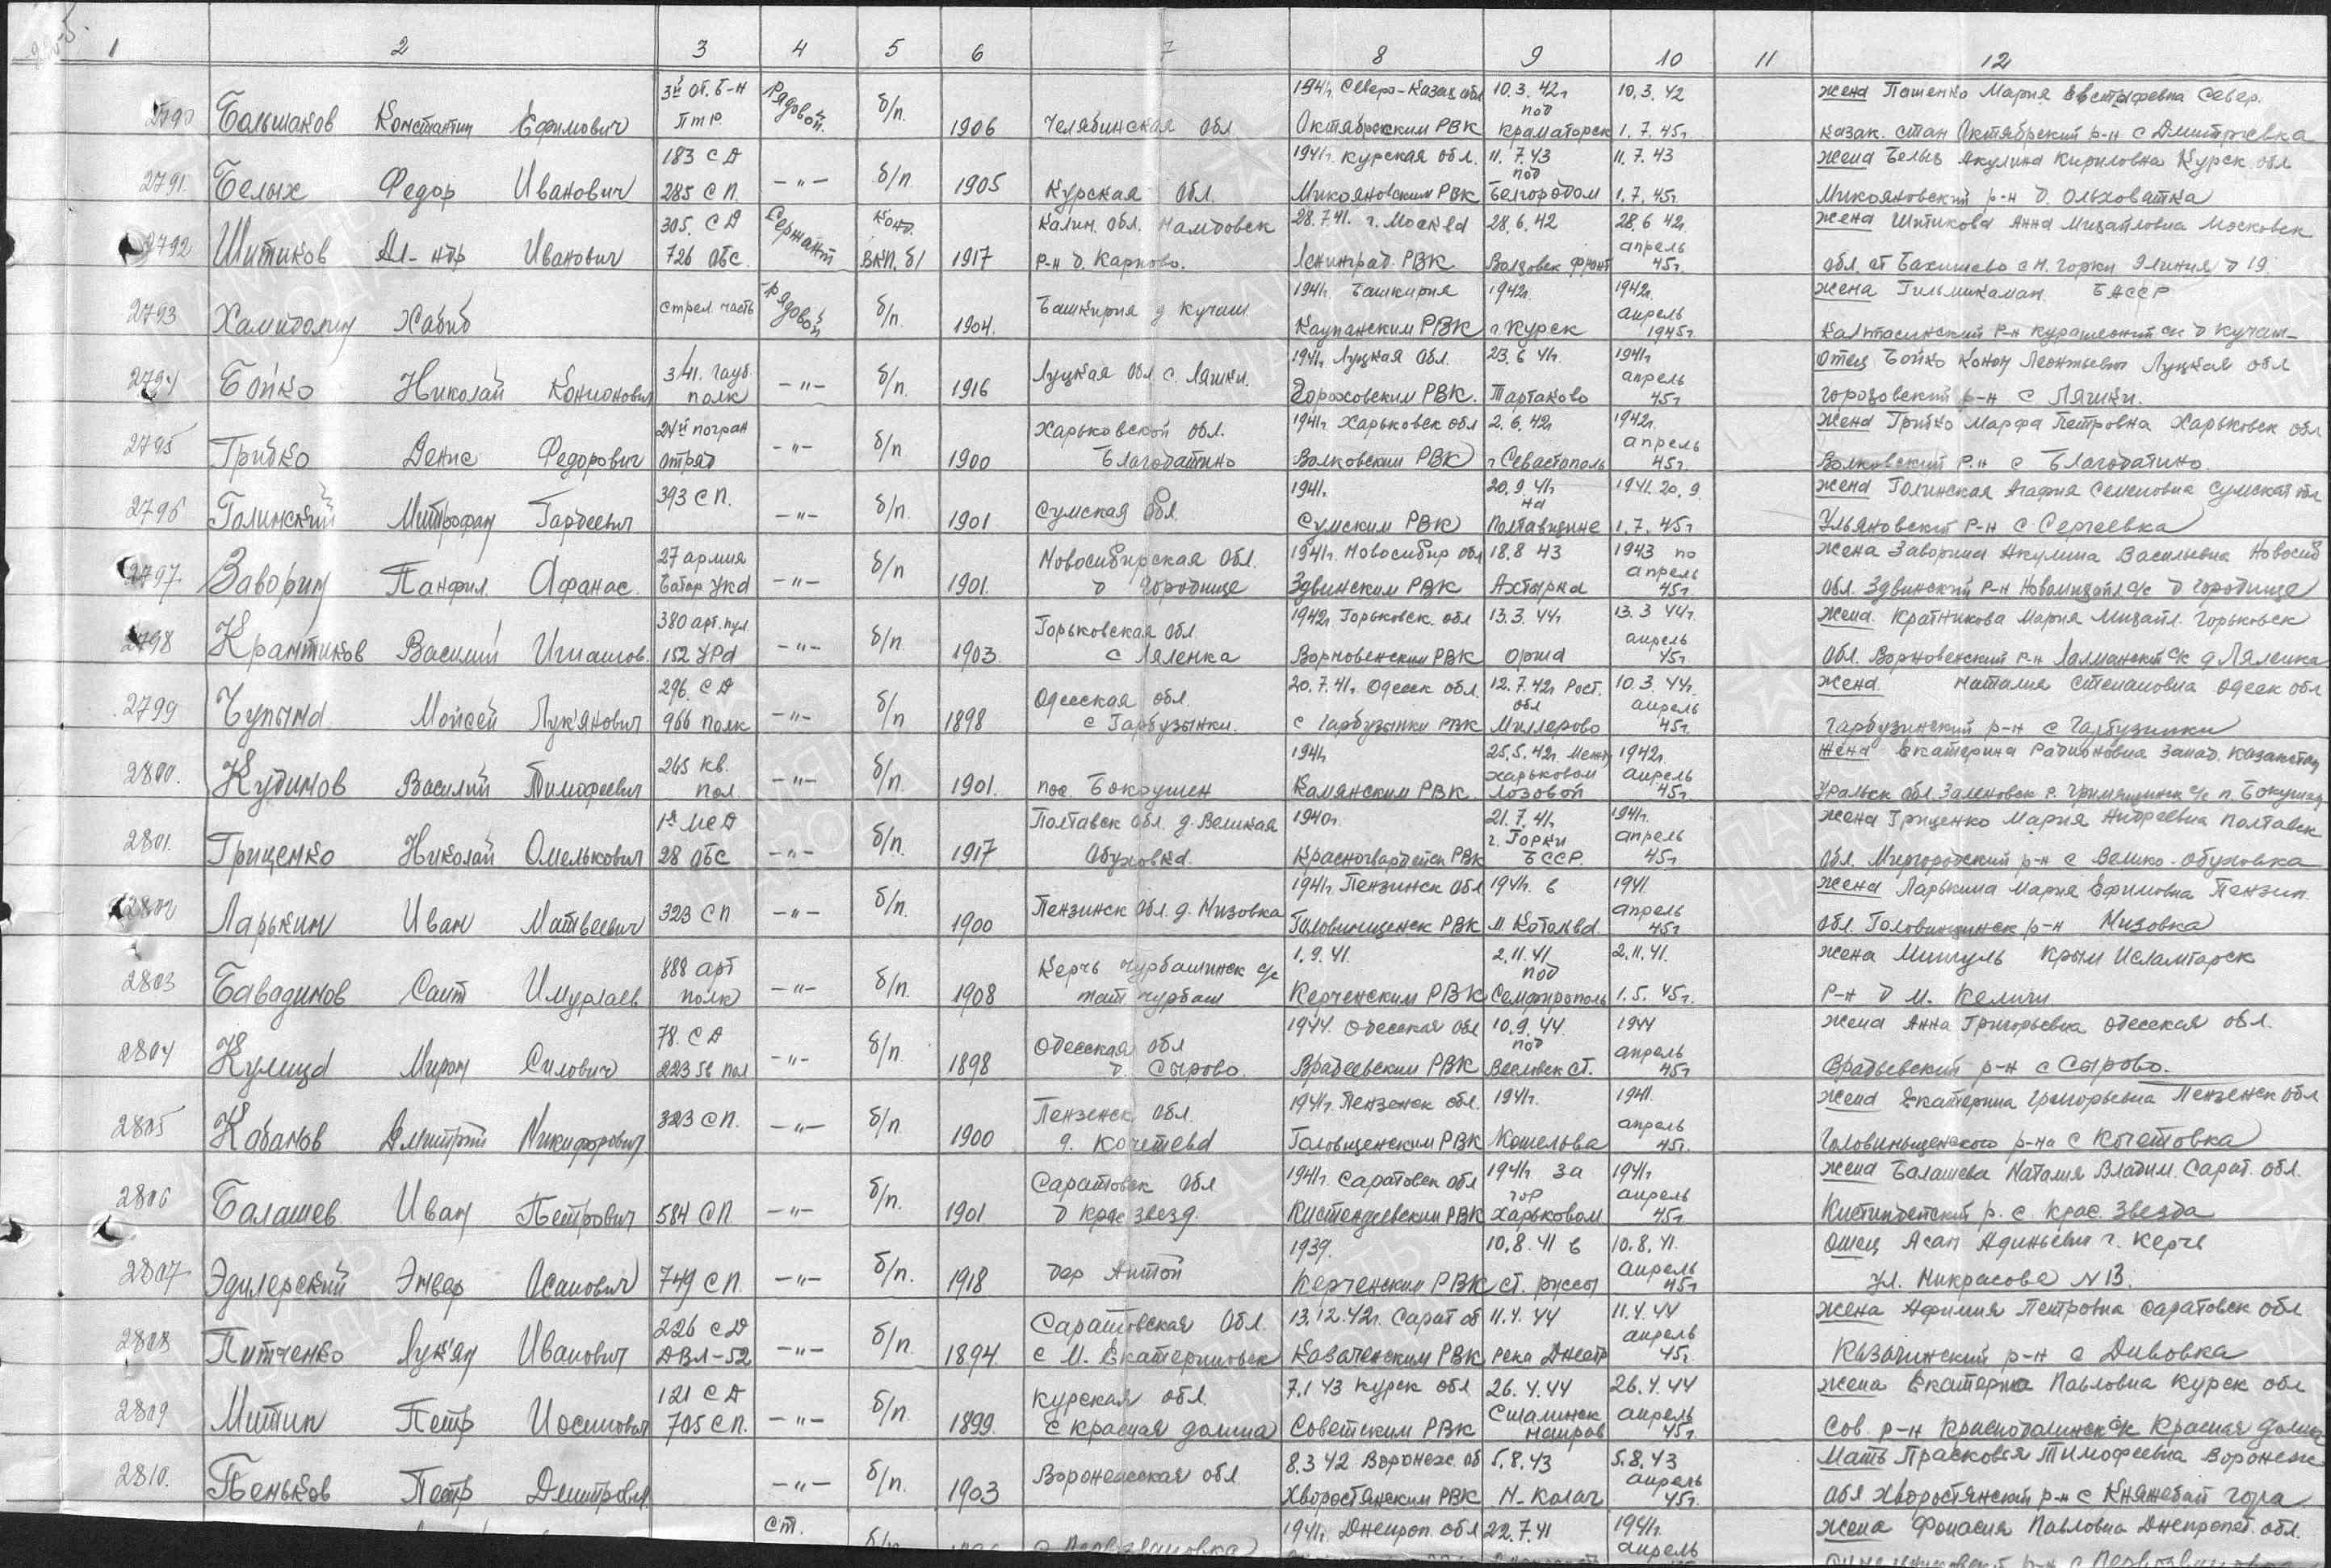 1 2 3 4 5 6 7 8 9 10 11 12
3й от. б-н Рядовой б/п. 1941г. Северо-Казах обл 10.3.42г 10.3.42 жена Пошенко Мария Евстафевна Север.
2790 Большаков Константин Ефимович ПТР. 1906 Челябинская Обл Октябрьским РВК под Краматорск 1.7.45г. Казак. стан Октябрский р-н с Дмитриевка
183 СД 1941г. Курская обл. 11.7.43 11.7.43 жена Белых Акулина Кириловна Курск обл
2791. Белых Федор Иванович 285 СП. -"- б/п. 1905 Курская Обл. Микояновским РВК под Белгородом 1.7.45г. Микояновский р-н д. Ольховатка
305. СД Сержант канд. Калин. обл. 28.7.41. г. Москва 28.6.42 28.6 42г. жена Шитикова Анна Михайловна Московск
2792 Шитиков Ал-ндр Иванович 726 Обс ВКП.б/ 1917 р-н д. Карпово. Ленинград. РВК Волховск фронт апрель 45г. обл. ст с Н. Горки 9 линия д 19.
стрел. часть Рядовой 1941г. Башкирия 1942г. 1942г. жена БАССР
2793 Хамидолин Хабиб б/п. 1904. Башкирия д Кучаш РВК г. Курск апрель 1945г. Калтасинский р-н с/с д Кучаш
341. Гауб. 1941г. Луцкая Обл. 23.6 41г. 1941г отец Бойко Конон Леонтьевич Луцкая обл
2794 Бойко Николай Кононович полк -"- б/п. 1916 Луцкая Обл с Ляшки. Гороховским РВК. Тартаково апрель 45г гороховский р-н с Ляшки.
24й погран Харьковской обл. 1941г Харьковск обл 2.6.42г 1942г. жена Грибко Марфа Петровна Харьковск обл
2795 Грибко Денис Федорович отряд -"- б/п. 1900 Благодатино Волковским РВК г Севастополь апрель 45г. Волковский р.н с Благодатино.
393 СП. 1941. 20.9.41г 1941. 20.9. жена Голинская Агафия Семеновна Сумская обл
2796 Голинский Митрофан Гордеевич -"- б/п. 1901 Сумская Обл. Сумским РВК на Полтавщине 1.7.45г Ульяновский р-н с Сергеевка
27 армия Новосибирская Обл. 1941г. Новосибир обл 18.8 43 1943 по жена Заворина Акулина Васильевна Новосиб
2797. Заворин Панфил. Афанас. -"- б/п 1901. д Городище Здвинским РВК Ахтырка апрель 45г. обл. Здвинский р-н с/с д Городище
380 арт.пул Горьковская обл 1942г. Горьковск. обл 13.3.44г 13.3 44г. жена. Кратникова Мария Михайл. Горьковск
2798 Василий 152 УРа -"- б/п 1903. с Ляленка РВК Орша апрель 45г. обл. р-н с/с д Ляленка
296. СД Одесская обл. 20.7.41г. Одесск обл. 12.7.42г Рост. обл 10.3.44г. жена. Наталия Степановна Одеск обл
2799 Чупына Мойсей Лук'янович 966 полк -"- б/п 1898 с Гарбузынки. с Гарбузынки РВК Миллерово апрель 45г. Гарбузинский р-н с Гарбузинки
265 кв. 1941г 25.5.42г. Между 1942г. жена Екатерина Радионовна Запад. Казахстан
2800. Кудинов Василий Тимофеевич пол -"- б/п 1901. пос. Камянским РВК. Харьковом Лозовой апрель 45г. Уральск обл. с/с п.
1я МСД Полтавск обл. д. Великая 1940г. 21.7.41г. 1941г. жена Гриценко Мария Андреевна Полтавск
2801. Гриценко Николай Омелькович 28 Обс -"- б/п. 1917 Обуховка. Красногвардейск РВК г. Горки БССР. апрель 45г обл. Миргородский р-н с Велико-Обуховка
1941г. Пензинск обл 1941г. в 1941. жена Ларькина Мария Ефимовна Пензин.
2802 Ларькин Иван Матвеевич 323 СП -"- б/п. 1900 Пензинск обл. д. Мизовка Головинщенск РВК апрель 45г обл. Головинщинск р-н Мизовка
888 арт Керчь Чурбашинск с/с 1.9.41. 2.11.41 2.11.41. жена Мингуль Крым Исламтарск
2803 Бавадинов Саит полк -"- б/п. 1908 Керченским РВК под Семфирополь 1.5.45г. р-н д М. Келичи
78. СД Одесская обл 1944. Одесская обл 10.9.44. 1944 жена Анна Григорьевна Одесская обл.
2804 Кулица Мирон Силович 223 -"- б/п. 1898 д. Сырово. Врадеевским РВК под ст. апрель 45г Врадьевский р-н с Сырово.
323 СП. Пензенск. обл. 1941г. Пензенск обл. 1941г. 1941. жена Екатерина Григорьевна Пензенск обл
2805 Кабанов Дмитрий Никифорович -"- б/п 1900 д. Кочетева РВК апрель 45г. р-на с Кочетовка
Саратовск Обл 1941г. Саратовск обл 1941г. за 1941г жена Балашева Наталия Владим. Сарат. обл.
2806 Балашев Иван Петрович 584 СП. -"- б/п. 1901 д Крас звезд. РВК гор Харьковом апрель 45г р. с. Крас. Звезда
1939. 10.8.41 в 10.8.41. отец Асан г. Керчь
2807 Эдилерский Энвер Асанович 749 СП. -"- б/п. 1918 дер Антой Керченским РВК ст. руссы апрель 45г ул. Никрасова N 13.
226 СД Саратовская Обл. 13.12.42г. Сарат об 11.4.44 11.4.44 жена Афимия Петровна Саратовск обл
2808 Питченко Лук'ян Иванович ДВЛ-52 -"- б/п. 1894. с М. Екатериновск Казаченским РВК река Днестр апрель 45г. Казачинский р-н с Дивовка
121 СД Курская обл. 7.1 43 Курск обл 26.4.44 26.4.44 жена Екатерина Павловна Курск обл
2809 Митин Петр Иосипович 705 СП. -"- б/п. 1899. с Красная долина Советским РВК апрель 45г. Сов. р-н Краснодолинск с/с Красная долина
8.3 42 Воронеж. об 5.8.43 5.8.43 Мать Прасковья Тимофеевна Воронеж
2810. Пеньков Петр -"- б/п. 1903 Воронежская обл Хворостянским РВК Н-Калач апрель 45г. обл Хворостянский р-н с Княжебай гора
ст. б/п 1941г. Днепроп. обл 22.7.41 1941г. апрель жена Фонасия Павловна Днепропет. обл.